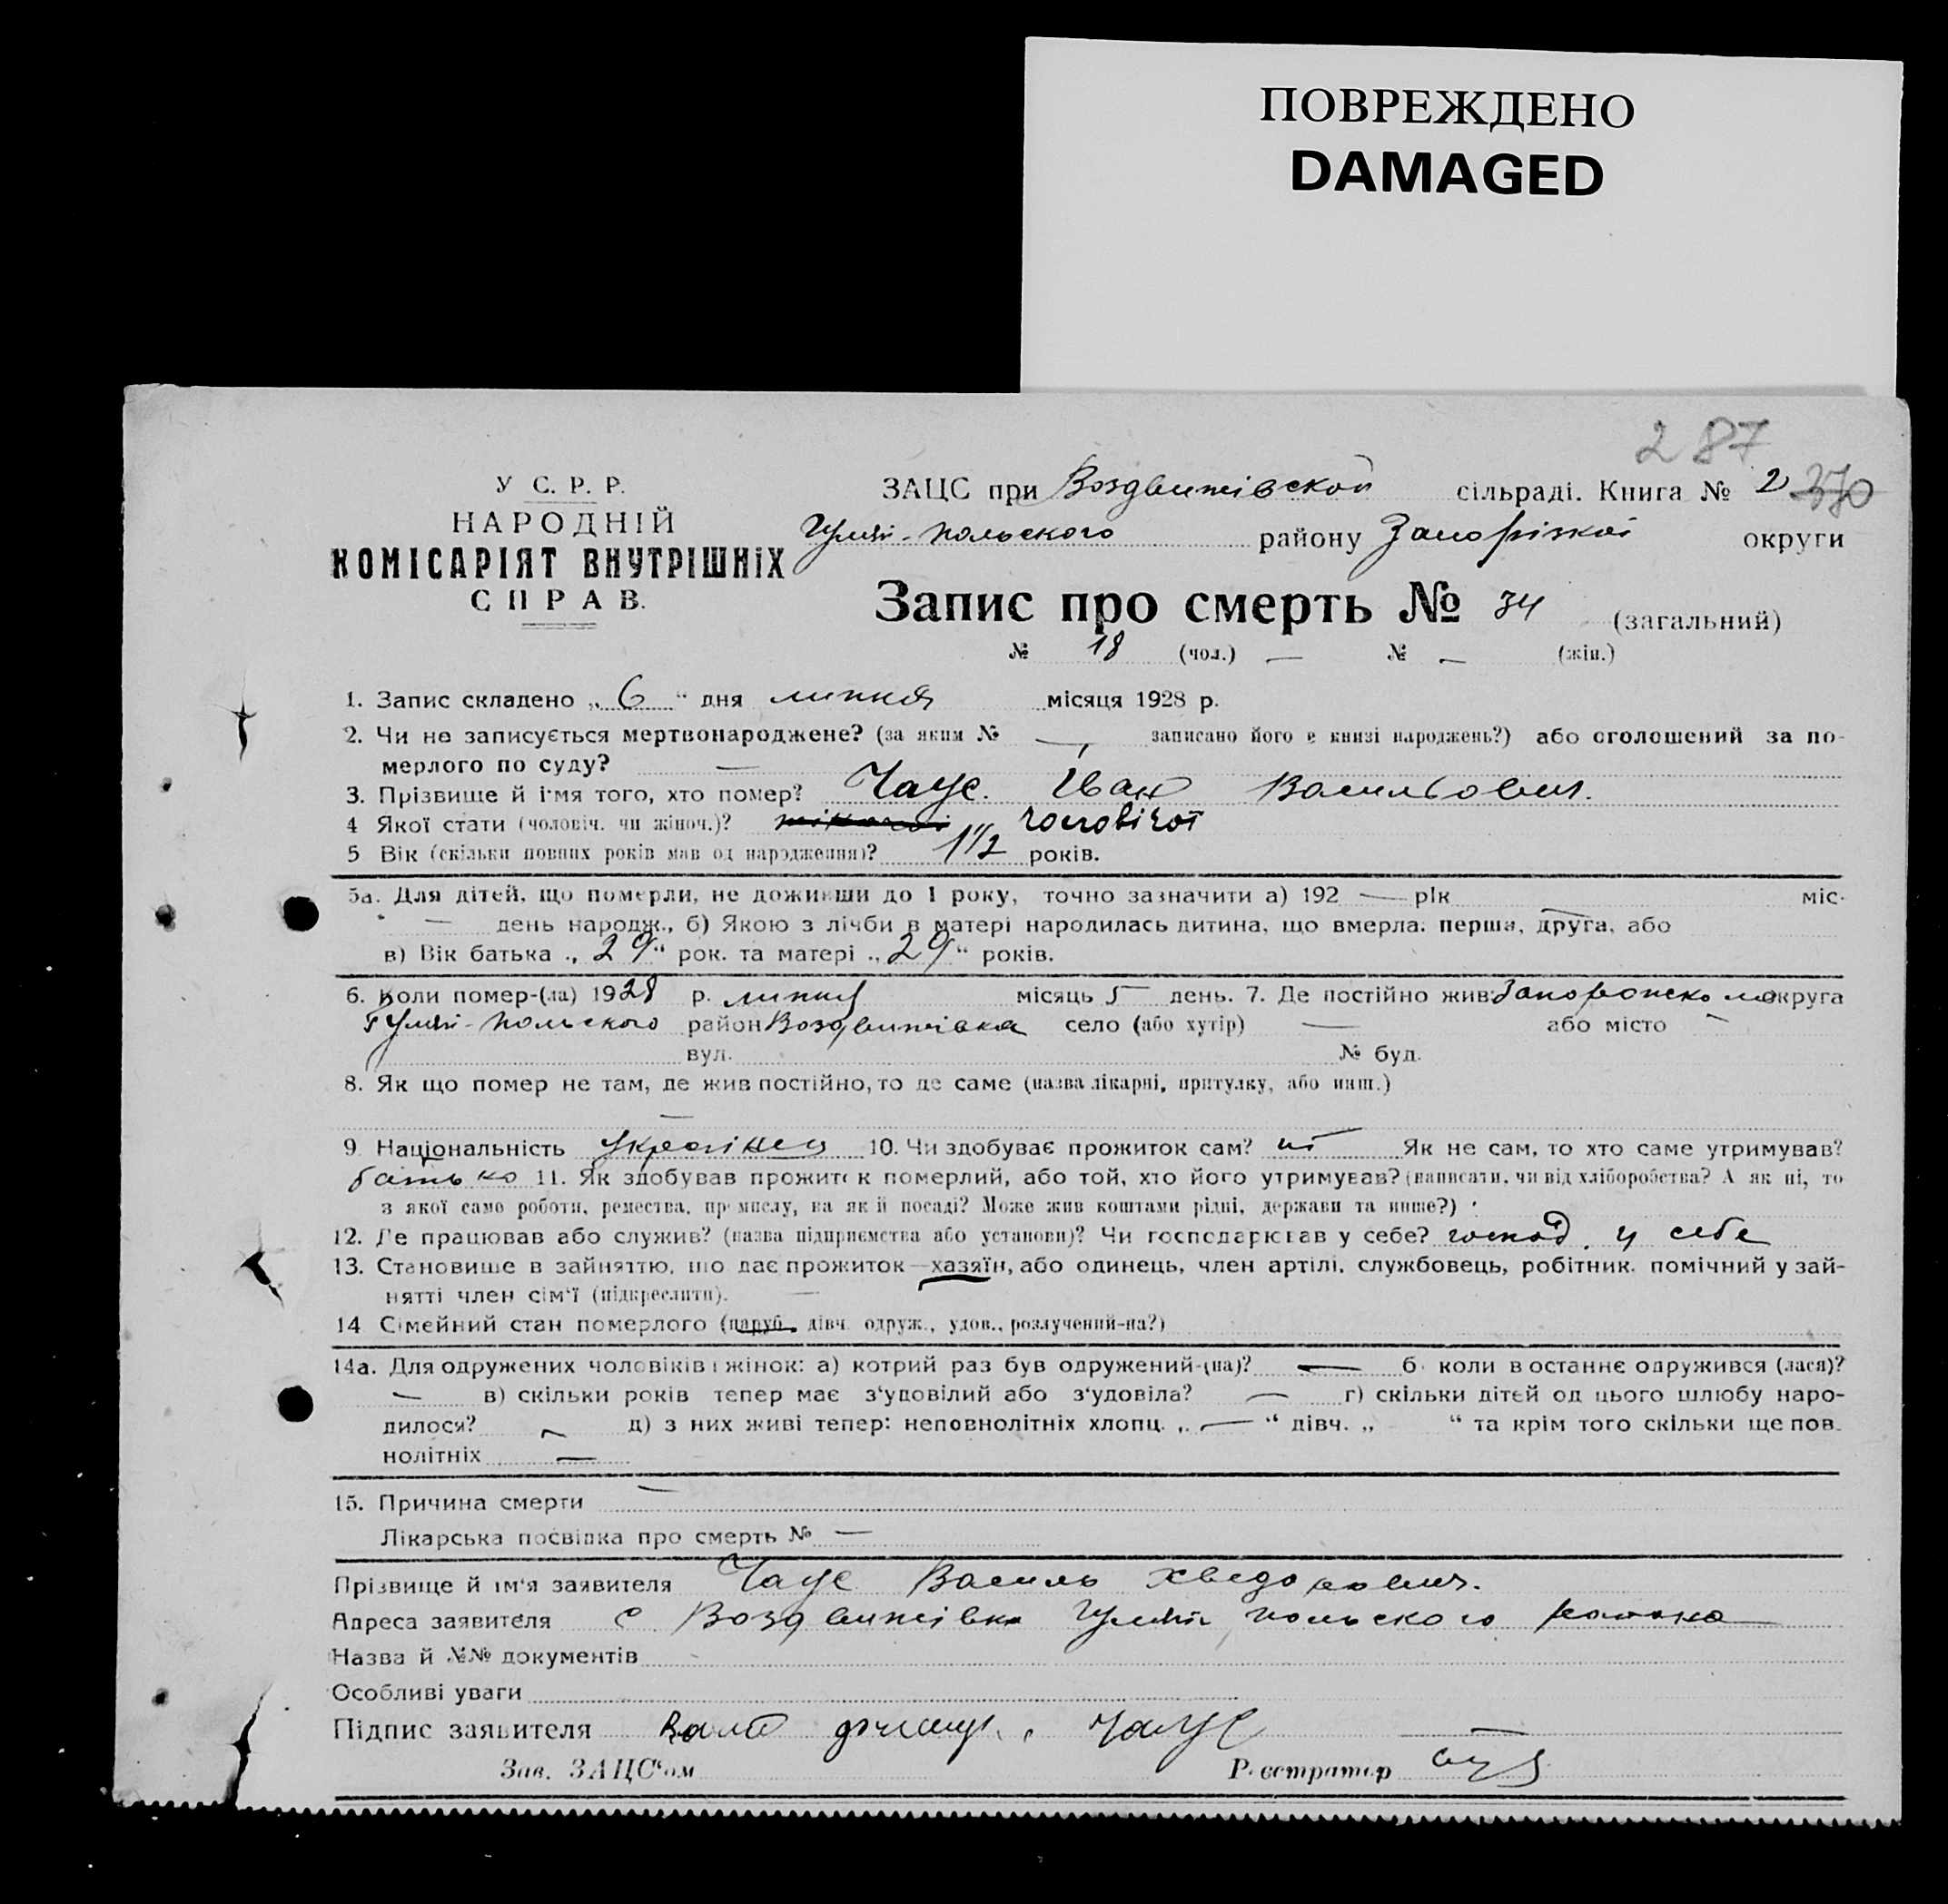 ПОВРЕЖДЕНО
DAMAGED
287
У С. Р. Р.
НАРОДНІЙ
КОМІСАРІЯТ ВНУТРІШНІХ
СПРАВ.
ЗАЦС при Воздвижівской сільраді. Книга № 2 370
Гуляй-польского району Запорізкої округи
Запис про смерть № 34 (загальний)
№ 18 (чол.) — № — (жін.)
1. Запис складено „ 6 “ дня липня місяця 1928 р.
2. Чи не записується мертвонароджене? (за яким № — записано його в книзі народжень?) або оголошений за по-
мерлого по суду? —
3. Прізвище й імя того, хто помер? Чаус Іван Васильович.
4 Якої стати (чоловіч. чи жіноч.)? чоловічої
5 Вік (скільки повних років мав од народження)? 1 1/2 років.
5а. Для дітей, що померли, не доживши до 1 року, точно зазначити а) 192 — рік міс.
— день народж., б) Якою з лічби в матері народилась дитина, що вмерла: перша, друга, або
в) Вік батька „ 29 “ рок. та матері „ 29 “ років.
6. Коли помер-(ла) 1928 р. липня місяць 5 день. 7. Де постійно жив: округа
Гуляй-польского район Воздвижівка село (або хутір) — або місто —
вул. № буд.
8. Як що помер не там, де жив постійно, то де саме (назва лікарні, притулку, або инш.)
—
9. Національність Українец 10. Чи здобуває прожиток сам? ні Як не сам, то хто саме утримував?
батько 11. Як здобував прожиток померлий, або той, хто його утримував? (написати, чи від хліборобства? А як ні, то
з якої само роботи, ремества, промислу, на якій посаді? Може жив коштами рідні, держави та инше?)
12. Де працював або служив? (назва підприємства або установи)? Чи господарював у себе? господ. у себе
13. Становище в зайняттю, що дає прожиток—хазяїн, або одинець, член артілі, службовець, робітник. помічний у зай-
нятті член сім'ї (підкреслити). —
14 Сімейний стан померлого (паруб., дівч. одруж., удов., розлучений-на?)
14а. Для одружених чоловіків і жінок: а) котрий раз був одружений-(на)? — б. коли в останнє одружився (лася)?
— в) скільки років тепер має з'удовілий або з'удовіла? — г) скільки дітей од цього шлюбу наро-
дилося? — д) з них живі тепер: неповнолітніх хлопц. „ — “ дівч. „ “ та крім того скільки ще пов.
нолітніх —
15. Причина смерти —
Лікарська посвідка про смерть № —
Прізвище й ім'я заявителя Чаус Василь Хведорович.
Адреса заявителя с Воздвижівка Гуляй польского района
Назва й №№ документів
Особливі уваги
Підпис заявителя Чаус —
Зав. ЗАЦС'ом Реєстратор